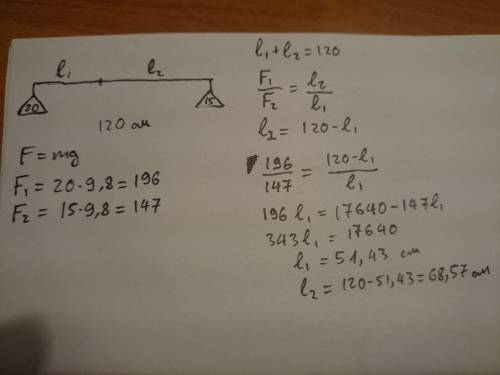 l₁ l₂
20 15
120 см
F = mg
F₁ = 20·9,8 = 196
F₂ = 15·9,8 = 147
l₁ + l₂ = 120
F₁/F₂ = l₂/l₁
l₂ = 120 - l₁
196/147 = 120-l₁/l₁
196 l₁ = 17640 - 147 l₁
343 l₁ = 17640
l₁ = 51,43 см
l₂ = 120-51,43 = 68,57 см